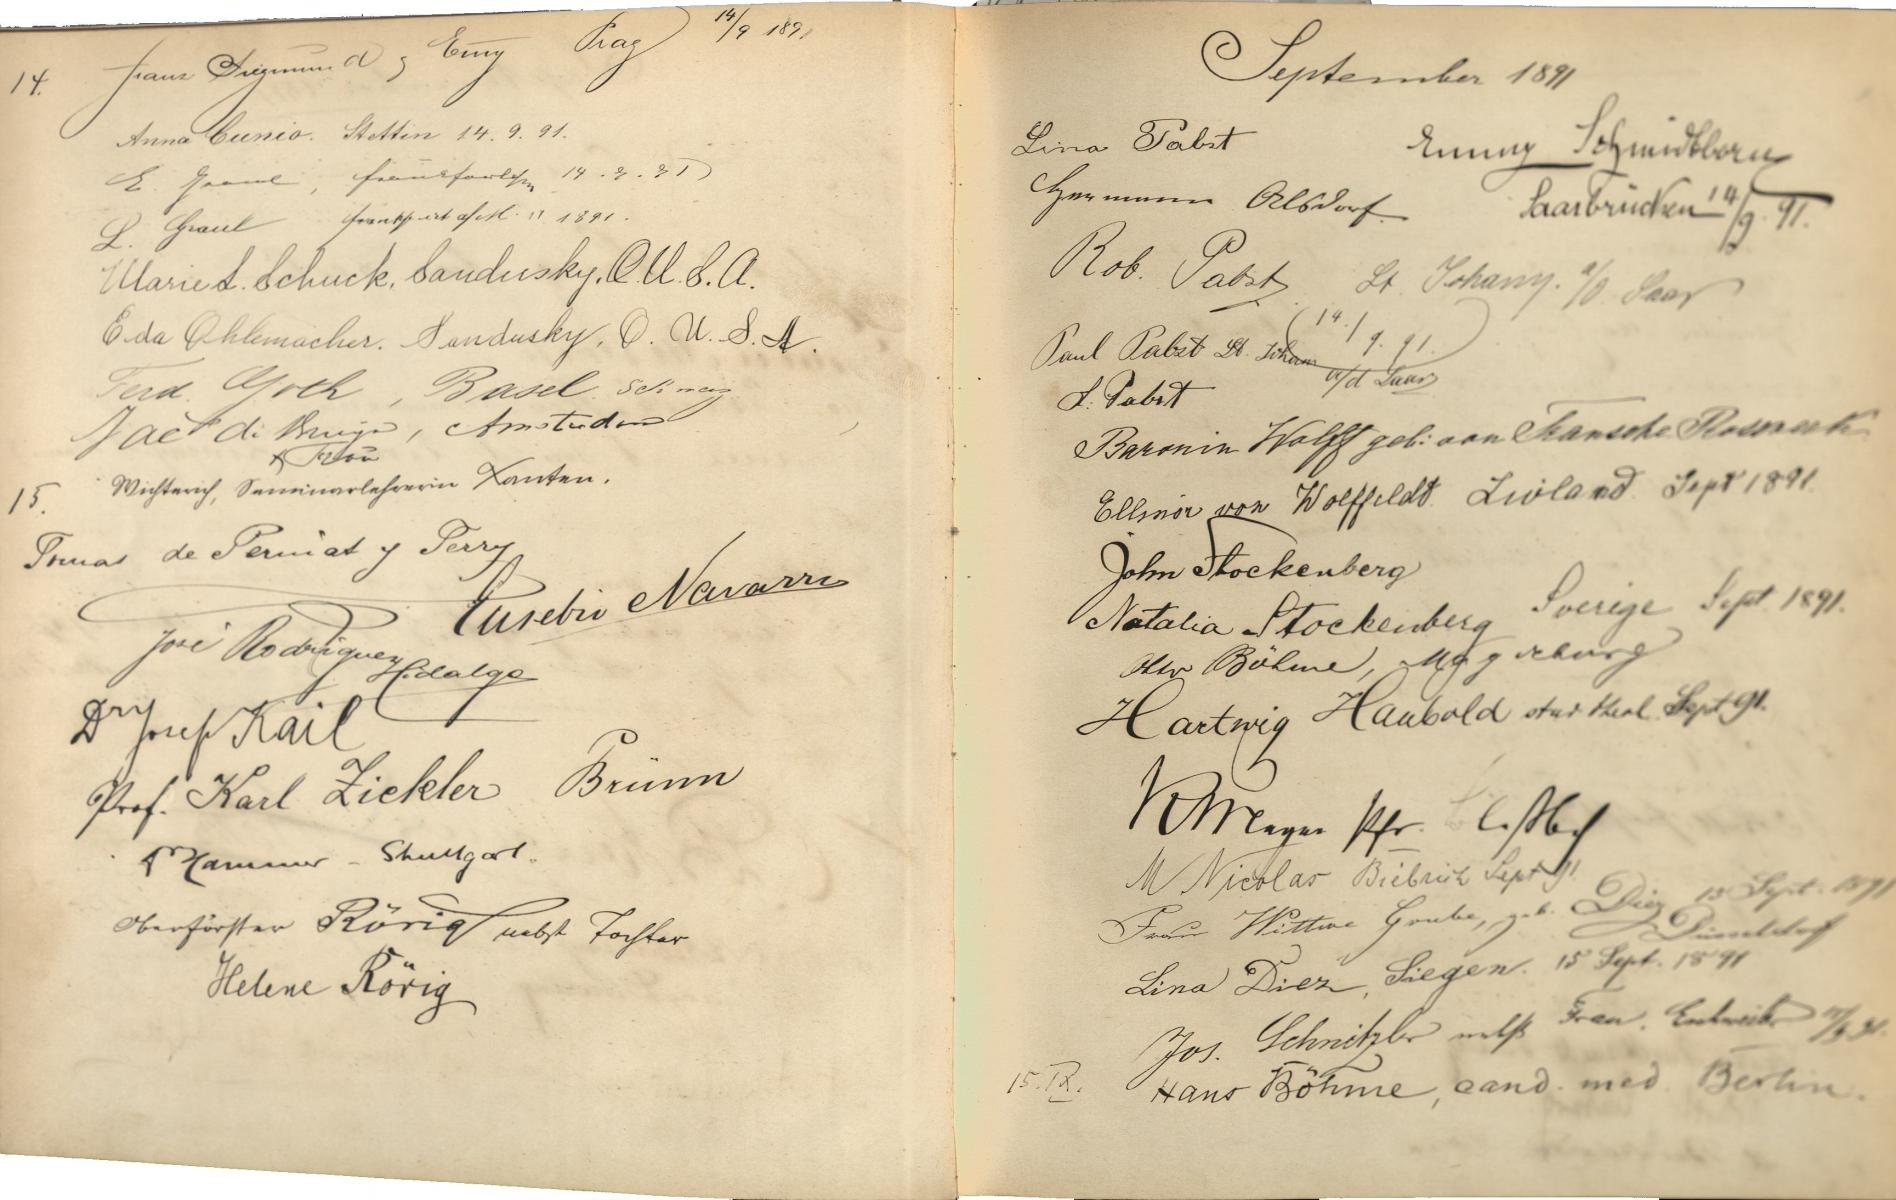 14. Franz Siegmund & Emy Prag 14/9 1891
Anna Cunio. Stettin 14. 9. 91.
E. 14. 9. 91
L. Graul Frankfurt a/M. " 1891.
Marie L. Schuck, Sandusky, O. U. S. A.
Eda Ohlemacher. Sandusky, O. U. S. A.
Ferd. Goth, Basel
Jacs de Bruijn, Amsterdam
& Frau
15. Wichterich, Seminarlehrerin Xanten.
Tomas de Perniat y Terry
Eusebio Navarro
José Rodriguez
Hidalgo
Dr Josef Kail
Prof. Karl Zickler Brünn
Hammer - Stuttgart.
Oberförster Rörig nebst Tochter
Helene Rörig
September 1891
Lina Pabst Emmy Schmidtborn
Hermann Alsdorf Saarbrücken 14/9. 91.
Rob. Pabst St. Johann. a/d Saar
14./9. 91.
Paul Pabst St. Johann a/d Saar
L. Pabst
Baronin Wolff geb: von Transehe Roseneck
Ellinor von Wolffeldt. Livland. Sept 1891.
John Stockenberg
Natalia Stockenberg Sverige Sept. 1891.
Otto Böhme, Magdeburg
Hartwig Haubold stud theol. Sept 91.
Meyer Pfr.
M Nicolas Biebrich Sept 91.
Frau Wittwe Grube, geb. Diez 15 Sept. 1891
Düsseldorf
Lina Diez, Siegen. 15 Sept. 1891
Jos. Schnitzler nebst Frau. Eschweiler
15. IX. Hans Böhme, cand. med. Berlin.